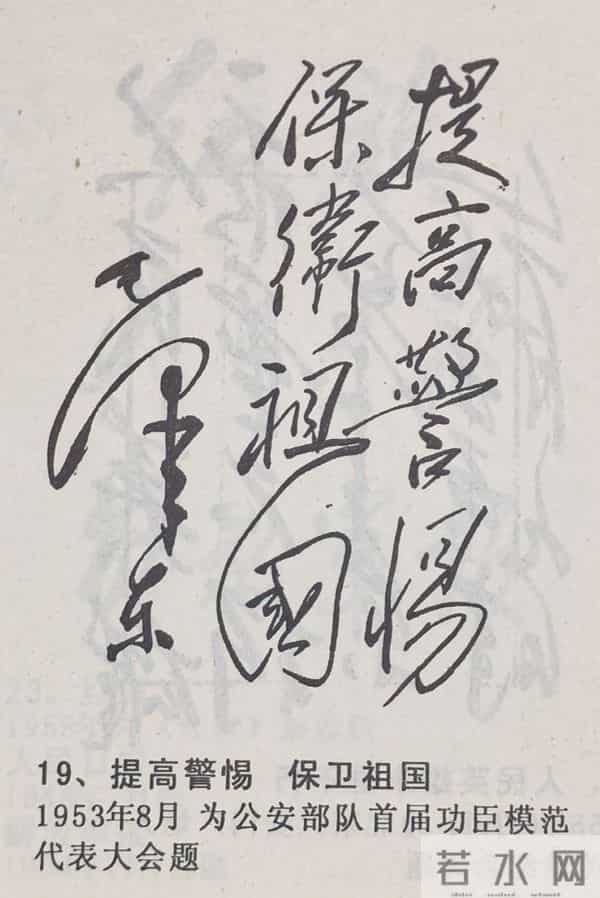 提高警惕
保衛祖國
毛澤东
19、提高警惕 保卫祖国
1953年8月 为公安部队首届功臣模范
代表大会题
若水网